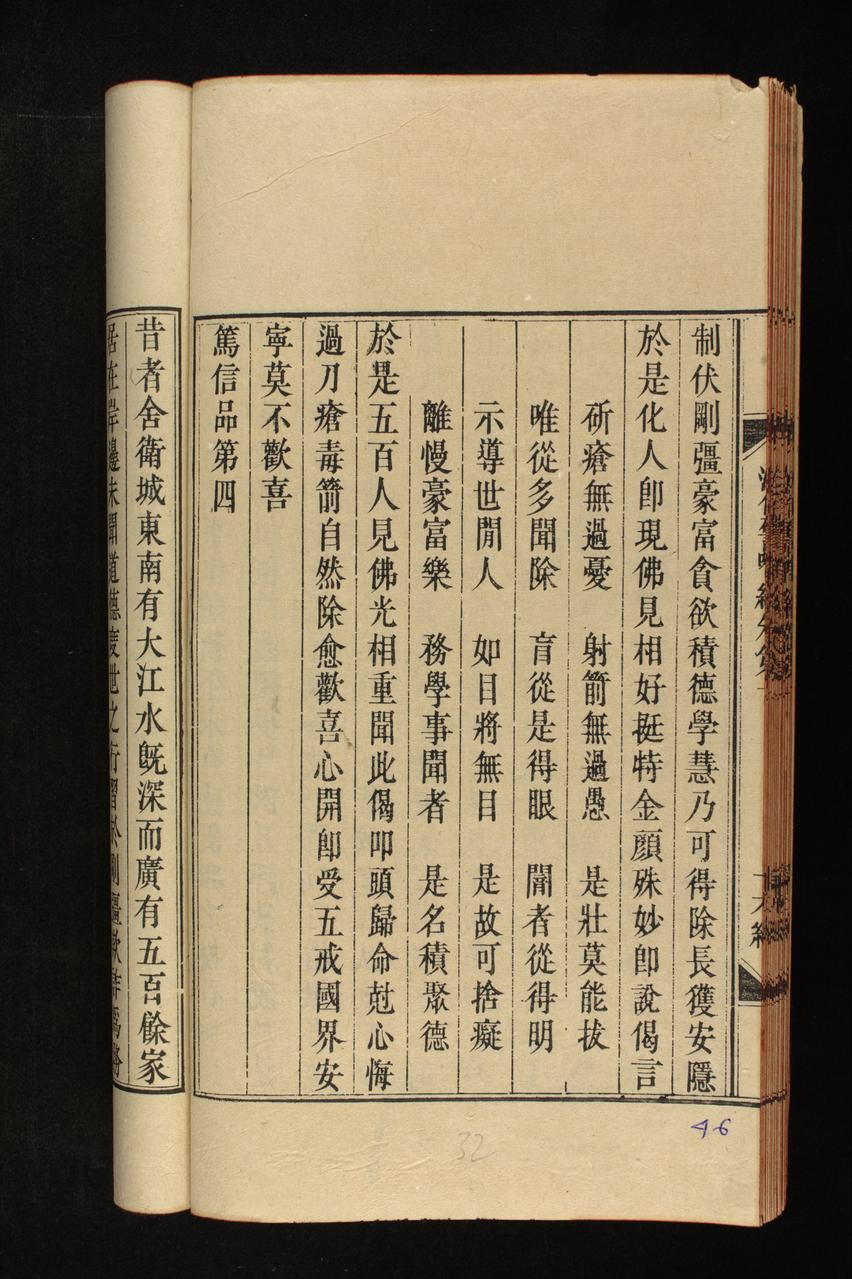 制伏剛彊豪富貪欲積德學慧乃可得除長獲安隱
於是化人卽現佛見相好挺特金顏殊妙卽說偈言
斫瘡無過憂　射箭無過愚　是壯莫能拔
唯從多聞除　盲從是得眼　闇者從得明
示導世閒人　如目將無目　是故可捨癡
離慢豪富樂　務學事聞者　是名積聚德
於是五百人見佛光相重聞此偈叩頭歸命尅心悔
過刀瘡毒箭自然除愈歡喜心開卽受五戒國界安
寧莫不歡喜
篤信品第四
昔者舍衞城東南有大江水旣深而廣有五百餘家
居在岸邊未聞道德度世之行習於剛彊欺詐爲務
46
32